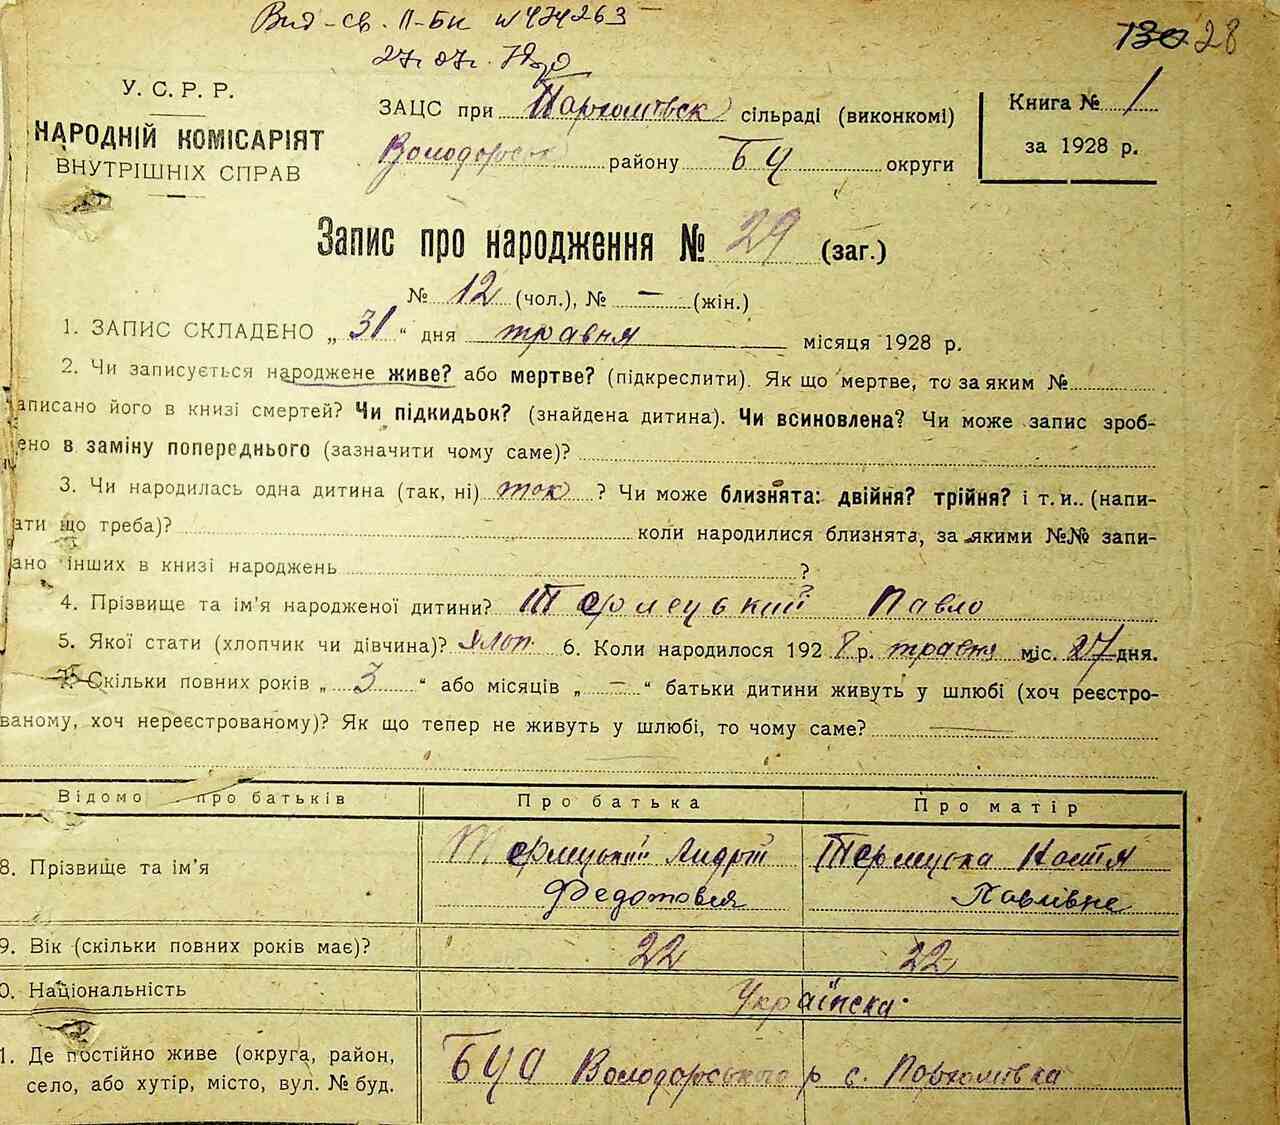 Вид-св. II-БК № 474263
130 28
27. 07.
У. С. Р. Р.
НАРОДНІЙ КОМІСАРІЯТ
ВНУТРІШНІХ СПРАВ
ЗАЦС при Пархомівск сільраді (виконкомі)
Володарськ району БЦ округи
Книга № 1
за 1928 р.
Запис про народження № 29 (заг.)
№ 12 (чол.), № — (жін.)
1. ЗАПИС СКЛАДЕНО „ 31 “ дня травня місяця 1928 р.
2. Чи записується народжене живе? або мертве? (підкреслити). Як що мертве, то за яким №
аписано його в книзі смертей? Чи підкидьок? (знайдена дитина). Чи всиновлена? Чи може запис зроб-
ено в заміну попереднього (зазначити чому саме)?
3. Чи народилась одна дитина (так, ні) так ? Чи може близнята: двійня? трійня? і т. и.. (напи-
ати що треба)? коли народилися близнята, за якими №№ запи-
ано інших в книзі народжень ?
4. Прізвище та ім'я народженої дитини? Термецький Павло
5. Якої стати (хлопчик чи дівчина)? хлоп 6. Коли народилося 192 8 р. травня міс. 27 дня.
7. Скільки повних років „ 3 “ або місяців „ — “ батьки дитини живуть у шлюбі (хоч реєстро-
ваному, хоч нереєстрованому)? Як що тепер не живуть у шлюбі, то чому саме? —
Відомо про батьків Про батька Про матір
8. Прізвище та ім'я Термецький Андрій Термецька Настя
Федотовия Павлівна
9. Вік (скільки повних років має)? 22 22
0. Національність Українска
1. Де постійно живе (округа, район, БЦО Володарського р с. Пархомівка
село, або хутір, місто, вул. № буд.